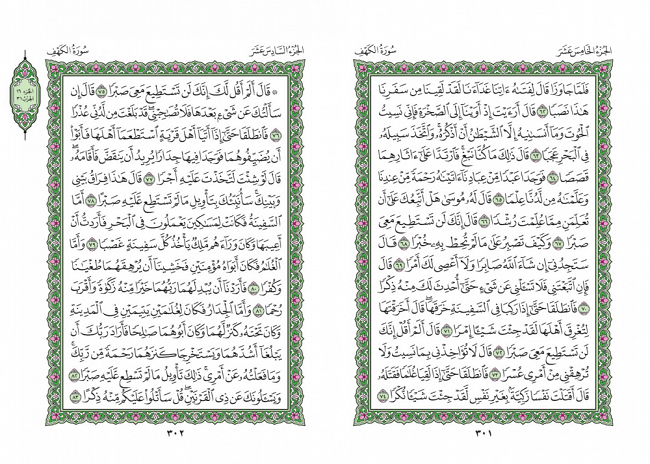 الجُزْءُ الخَامِسَ عَشَرَ
سُورَةُ الكَهْفِ
فَلَمَّا جَاوَزَا قَالَ لِفَتَىٰهُ ءَاتِنَا غَدَآءَنَا لَقَدْ لَقِينَا مِن سَفَرِنَا
هَٰذَا نَصَبًا ٦٢ قَالَ أَرَءَيْتَ إِذْ أَوَيْنَآ إِلَى ٱلصَّخْرَةِ فَإِنِّي نَسِيتُ
ٱلْحُوتَ وَمَآ أَنسَىٰنِيهُ إِلَّا ٱلشَّيْطَٰنُ أَنْ أَذْكُرَهُۥ وَٱتَّخَذَ سَبِيلَهُۥ
فِي ٱلْبَحْرِ عَجَبًا ٦٣ قَالَ ذَٰلِكَ مَا كُنَّا نَبْغِ فَٱرْتَدَّا عَلَىٰٓ ءَاثَارِهِمَا
قَصَصًا ٦٤ فَوَجَدَا عَبْدًا مِّنْ عِبَادِنَآ ءَاتَيْنَٰهُ رَحْمَةً مِّنْ عِندِنَا
وَعَلَّمْنَٰهُ مِن لَّدُنَّا عِلْمًا ٦٥ قَالَ لَهُۥ مُوسَىٰ هَلْ أَتَّبِعُكَ عَلَىٰٓ أَن
تُعَلِّمَنِ مِمَّا عُلِّمْتَ رُشْدًا ٦٦ قَالَ إِنَّكَ لَن تَسْتَطِيعَ مَعِيَ
صَبْرًا ٦٧ وَكَيْفَ تَصْبِرُ عَلَىٰ مَا لَمْ تُحِطْ بِهِۦ خُبْرًا ٦٨ قَالَ
سَتَجِدُنِيٓ إِن شَآءَ ٱللَّهُ صَابِرًا وَلَآ أَعْصِي لَكَ أَمْرًا ٦٩ قَالَ
فَإِنِ ٱتَّبَعْتَنِي فَلَا تَسْـَٔلْنِي عَن شَيْءٍ حَتَّىٰٓ أُحْدِثَ لَكَ مِنْهُ ذِكْرًا
٧٠ فَٱنطَلَقَا حَتَّىٰٓ إِذَا رَكِبَا فِي ٱلسَّفِينَةِ خَرَقَهَا قَالَ أَخَرَقْتَهَا
لِتُغْرِقَ أَهْلَهَا لَقَدْ جِئْتَ شَيْـًٔا إِمْرًا ٧١ قَالَ أَلَمْ أَقُلْ إِنَّكَ
لَن تَسْتَطِيعَ مَعِيَ صَبْرًا ٧٢ قَالَ لَا تُؤَاخِذْنِي بِمَا نَسِيتُ وَلَا
تُرْهِقْنِي مِنْ أَمْرِي عُسْرًا ٧٣ فَٱنطَلَقَا حَتَّىٰٓ إِذَا لَقِيَا غُلَٰمًا فَقَتَلَهُۥ
قَالَ أَقَتَلْتَ نَفْسًا زَكِيَّةًۢ بِغَيْرِ نَفْسٍ لَّقَدْ جِئْتَ شَيْـًٔا نُّكْرًا ٧٤
٣٠١
الجُزْءُ السَّادِسَ عَشَرَ
سُورَةُ الكَهْفِ
الجزء ١٦
الحزب ٣١
۞ قَالَ أَلَمْ أَقُل لَّكَ إِنَّكَ لَن تَسْتَطِيعَ مَعِيَ صَبْرًا ٧٥ قَالَ إِن
سَأَلْتُكَ عَن شَيْءٍۭ بَعْدَهَا فَلَا تُصَٰحِبْنِي قَدْ بَلَغْتَ مِن لَّدُنِّي عُذْرًا
٧٦ فَٱنطَلَقَا حَتَّىٰٓ إِذَآ أَتَيَآ أَهْلَ قَرْيَةٍ ٱسْتَطْعَمَآ أَهْلَهَا فَأَبَوْا۟
أَن يُضَيِّفُوهُمَا فَوَجَدَا فِيهَا جِدَارًا يُرِيدُ أَن يَنقَضَّ فَأَقَامَهُۥ
قَالَ لَوْ شِئْتَ لَتَّخَذْتَ عَلَيْهِ أَجْرًا ٧٧ قَالَ هَٰذَا فِرَاقُ بَيْنِي
وَبَيْنِكَ سَأُنَبِّئُكَ بِتَأْوِيلِ مَا لَمْ تَسْتَطِع عَّلَيْهِ صَبْرًا ٧٨ أَمَّا
ٱلسَّفِينَةُ فَكَانَتْ لِمَسَٰكِينَ يَعْمَلُونَ فِي ٱلْبَحْرِ فَأَرَدتُّ أَنْ
أَعِيبَهَا وَكَانَ وَرَآءَهُم مَّلِكٌ يَأْخُذُ كُلَّ سَفِينَةٍ غَصْبًا ٧٩ وَأَمَّا
ٱلْغُلَٰمُ فَكَانَ أَبَوَاهُ مُؤْمِنَيْنِ فَخَشِينَآ أَن يُرْهِقَهُمَا طُغْيَٰنًا
وَكُفْرًا ٨٠ فَأَرَدْنَآ أَن يُبْدِلَهُمَا رَبُّهُمَا خَيْرًا مِّنْهُ زَكَوٰةً وَأَقْرَبَ
رُحْمًا ٨١ وَأَمَّا ٱلْجِدَارُ فَكَانَ لِغُلَٰمَيْنِ يَتِيمَيْنِ فِي ٱلْمَدِينَةِ
وَكَانَ تَحْتَهُۥ كَنزٌ لَّهُمَا وَكَانَ أَبُوهُمَا صَٰلِحًا فَأَرَادَ رَبُّكَ أَن
يَبْلُغَآ أَشُدَّهُمَا وَيَسْتَخْرِجَا كَنزَهُمَا رَحْمَةً مِّن رَّبِّكَ
وَمَا فَعَلْتُهُۥ عَنْ أَمْرِي ذَٰلِكَ تَأْوِيلُ مَا لَمْ تَسْطِع عَّلَيْهِ صَبْرًا ٨٢
وَيَسْـَٔلُونَكَ عَن ذِي ٱلْقَرْنَيْنِ قُلْ سَأَتْلُوا۟ عَلَيْكُم مِّنْهُ ذِكْرًا ٨٣
٣٠٢